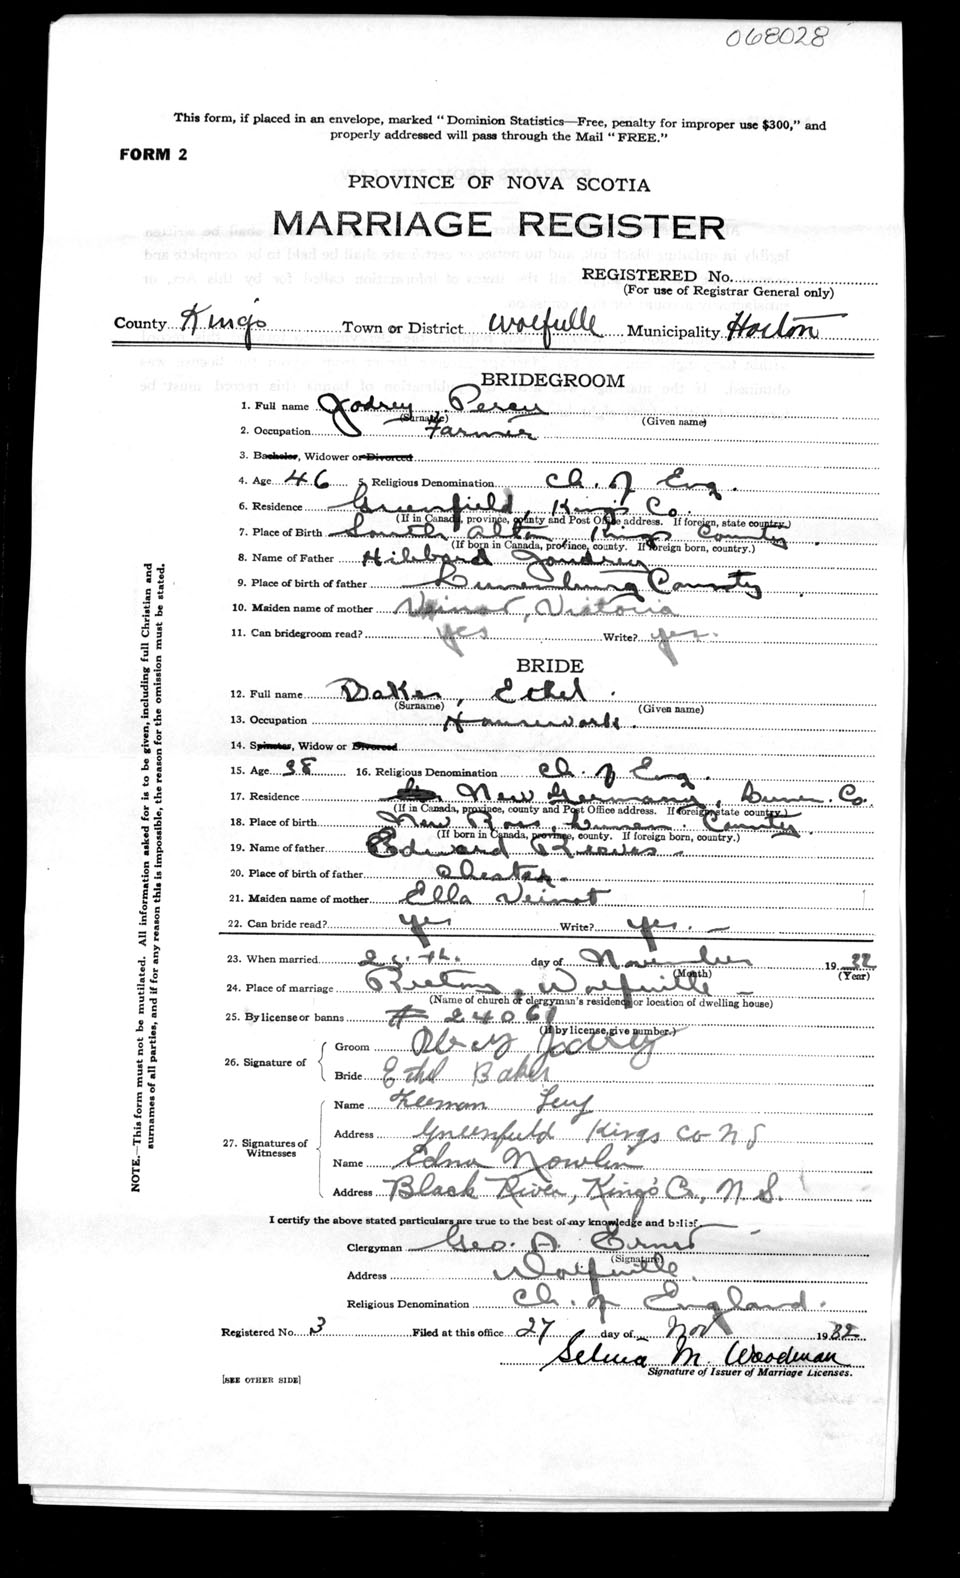 068028
This form, if placed in an envelope, marked "Dominion Statistics—Free, penalty for improper use $300," and
properly addressed will pass through the Mail "FREE."
FORM 2
PROVINCE OF NOVA SCOTIA
MARRIAGE REGISTER
REGISTERED No.
(For use of Registrar General only)
County Kings Town or District Wolfville Municipality Horton
BRIDEGROOM
1. Full name Jodrey Percy
(Surname) (Given name)
2. Occupation Farmer
3. Bachelor, Widower or Divorced
4. Age 46 5. Religious Denomination Ch. of Eng.
6. Residence Greenfield, King's Co.
(If in Canada, province, county and Post Office address. If foreign, state country.)
7. Place of Birth South Alton Kings County.
(If born in Canada, province, county. If foreign born, country.)
8. Name of Father Hibbard Joudrey
9. Place of birth of father Lunenburg County
10. Maiden name of mother Veinot, Victoria
11. Can bridegroom read? yes Write? yes.
BRIDE
12. Full name Baker, Ethel.
(Surname) (Given name)
13. Occupation Housework.
14. Spinster, Widow or Divorced
15. Age 38 16. Religious Denomination Ch. of Eng.
17. Residence New Germany, Lunen. Co.
(If in Canada, province, county and Post Office address. If foreign, state country.)
18. Place of birth New Ross, Lunen. County.
(If born in Canada, province, county. If foreign born, country.)
19. Name of father Edward
20. Place of birth of father Chester.
21. Maiden name of mother Ella Veinot
22. Can bride read? yes Write? yes.
23. When married day of November 1932
(Month) (Year)
24. Place of marriage Wolfville
(Name of church or clergyman's residence or location of dwelling house)
25. By license or banns # 24061
(If by license, give number.)
26. Signature of
Groom Percy Jodrey
Bride Ethel Baker
27. Signatures of
Witnesses
Name
Address Greenfield Kings Co N S
Name Edna Nowlin
Address Black River, King's Co., N.S.
I certify the above stated particulars are true to the best of my knowledge and belief.
Clergyman Geo. A. Ernst
(Signature)
Address Wolfville.
Religious Denomination Ch. of England.
Registered No. 3 Filed at this office 27 day of Nov 1932
Selina M. Woodman
Signature of Issuer of Marriage Licenses.
[SEE OTHER SIDE]
NOTE.—This form must not be mutilated. All information asked for is to be given, including full Christian and
surnames of all parties, and if for any reason this is impossible, the reason for the omission must be stated.